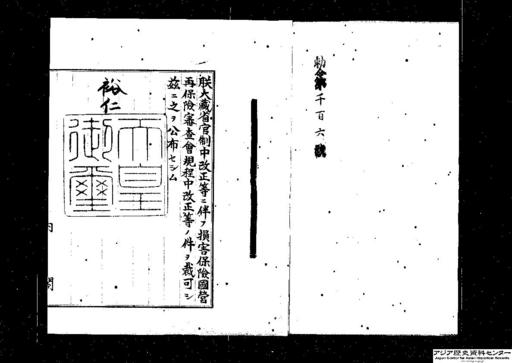 勅令第千百六號
朕大藏省官制中改正等ニ伴フ損害保險國營
再保險審査會規程中改正等ノ件ヲ裁可シ
茲ニ之ヲ公布セシム
裕仁
天皇
御璽
内閣
アジア歴史資料センター
Japan Center for Asian Historical Records